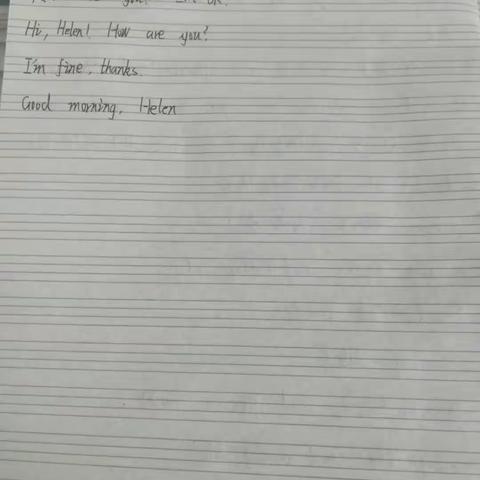 you
Hi, Helen! How are you?
I'm fine, thanks.
Good morning, Helen